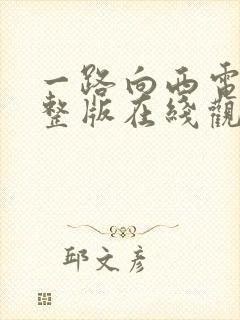 一路向西電
整版在綫觀
邱文彦